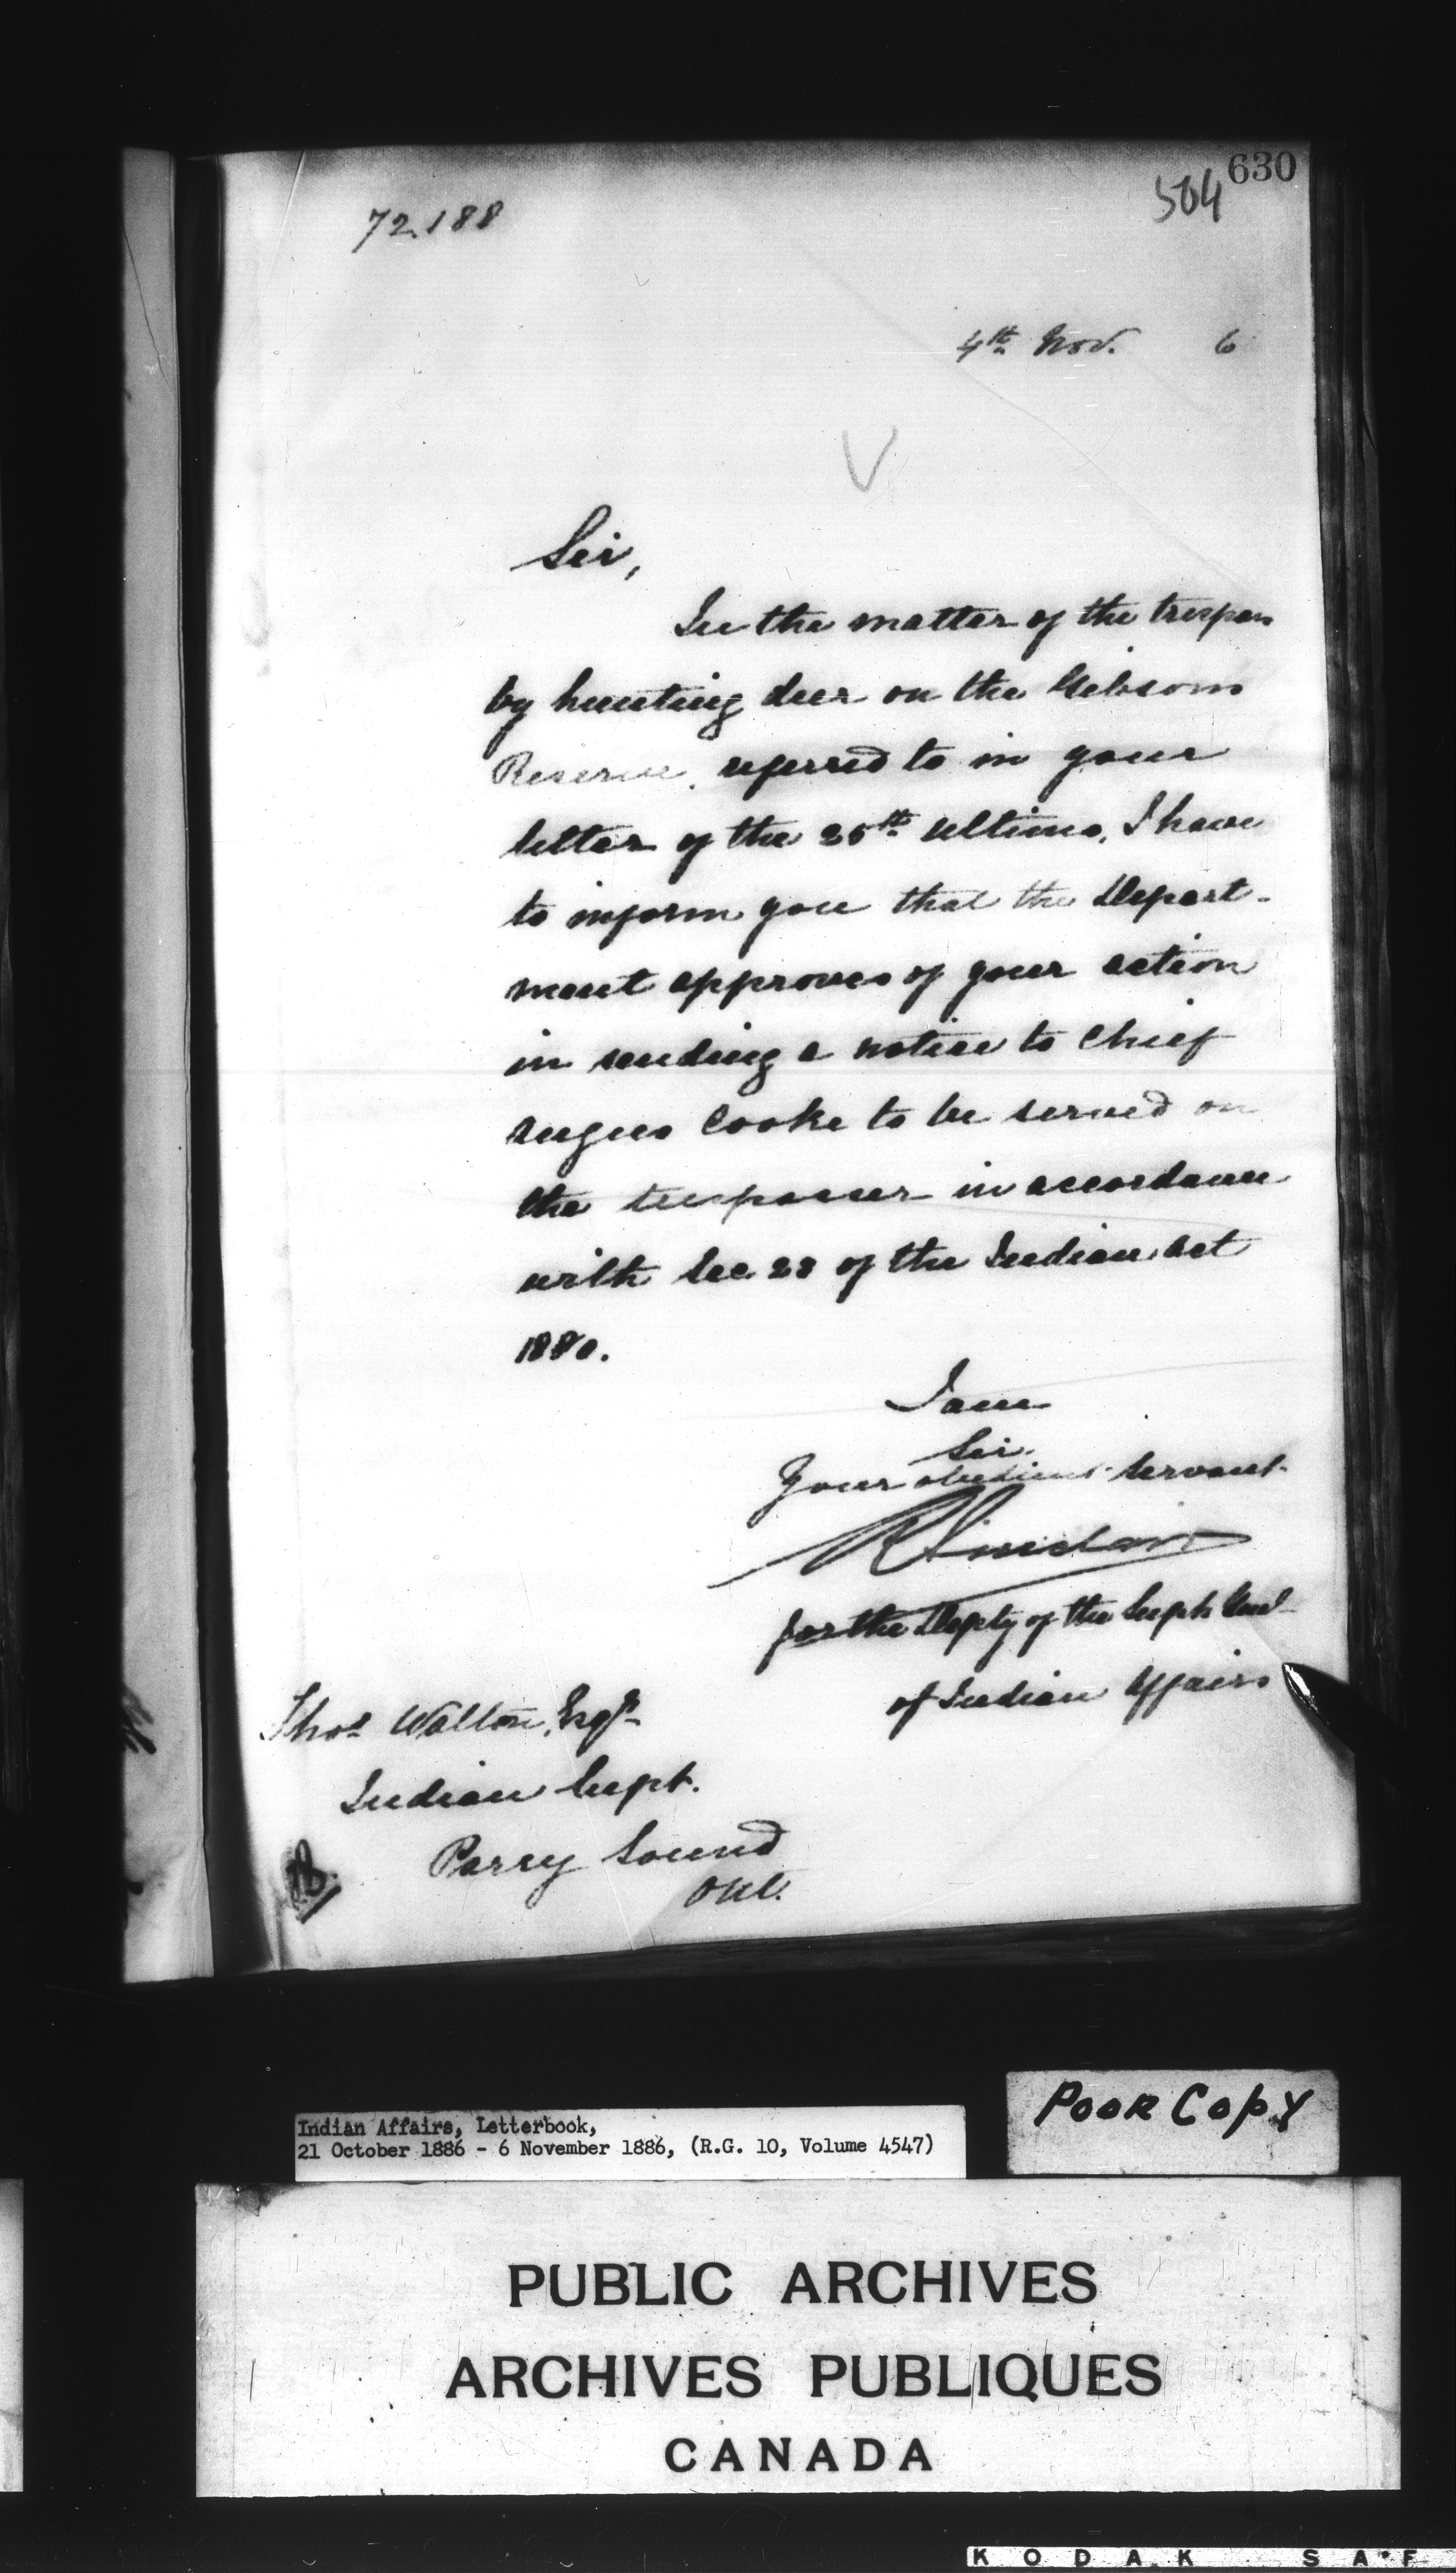 630
504
72.188
4th Nov. 6
Sir,
In the matter of the trespass
by hunting deer on the Gibson
Reserve, referred to in your
letter of the 25th ultimo, I have
to inform you that the Depart-
ment approves of your action
in sending a notice to Chief
Angus Cooke to be served on
the trespasser in accordance
with Sec. 28 of the Indian Act
1880.
I am
Sir
Your obedient servant
R Sinclair
for the Depty of the Supt. Genl
of Indian Affairs
Thos Walton, Esqr
Indian Supt.
Parry Sound
Ont.
Poor Copy
Indian Affairs, Letterbook,
21 October 1886 - 6 November 1886, (R.G. 10, Volume 4547)
PUBLIC ARCHIVES
ARCHIVES PUBLIQUES
CANADA
KODAK SAF